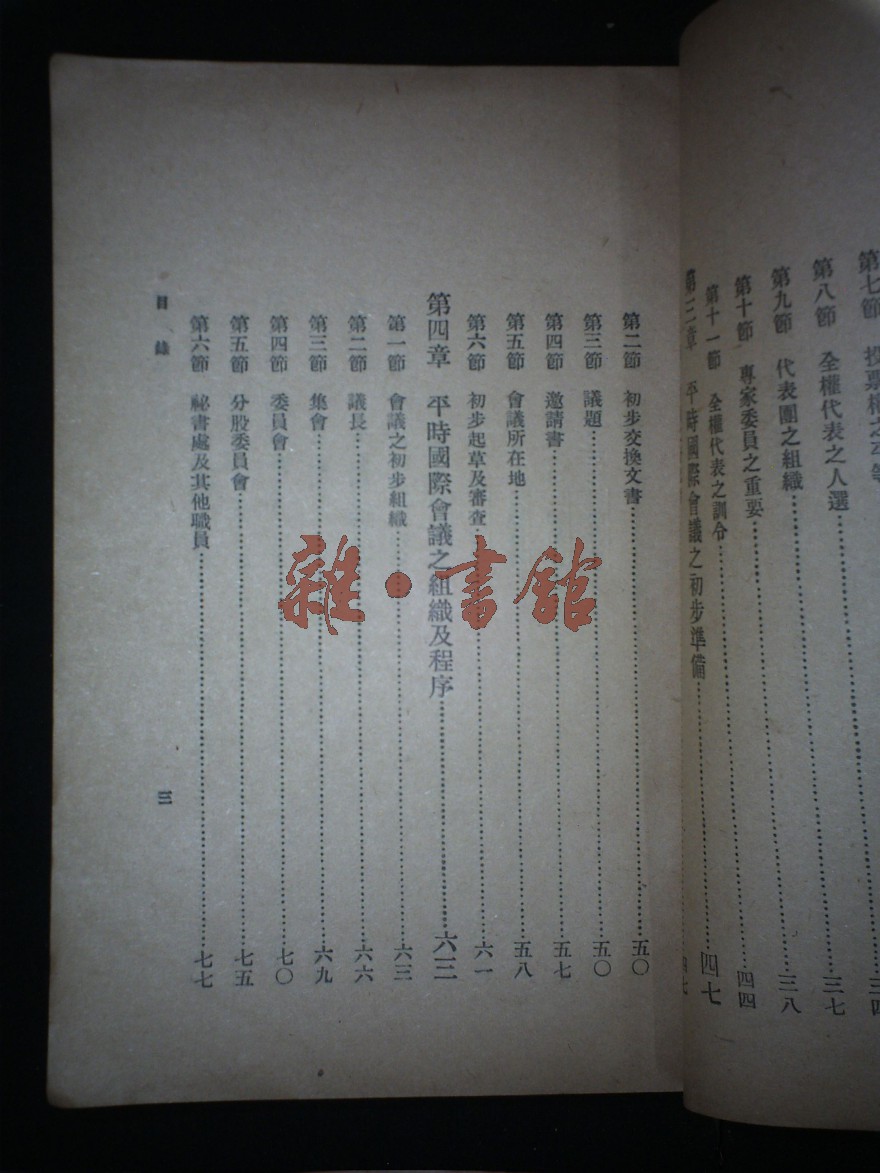 第七節 投票權之平等……三四
第八節 全權代表之人選……三七
第九節 代表團之組織……三八
第十節 專家委員之重要……四四
第十一節 全權代表之訓令
第三章 平時國際會議之初步準備……四七
四七
第二節 初步交換文書……五〇
第三節 議題……五〇
第四節 邀請書……五七
第五節 會議所在地……五八
第六節 初步起草及審查……六一
第四章 平時國際會議之組織及程序……六三
第一節 會議之初步組織……六三
第二節 議長……六六
第三節 集會……六九
第四節 委員會……七〇
第五節 分股委員會……七五
第六節 祕書處及其他職員……七七
目錄
三
雜·書館